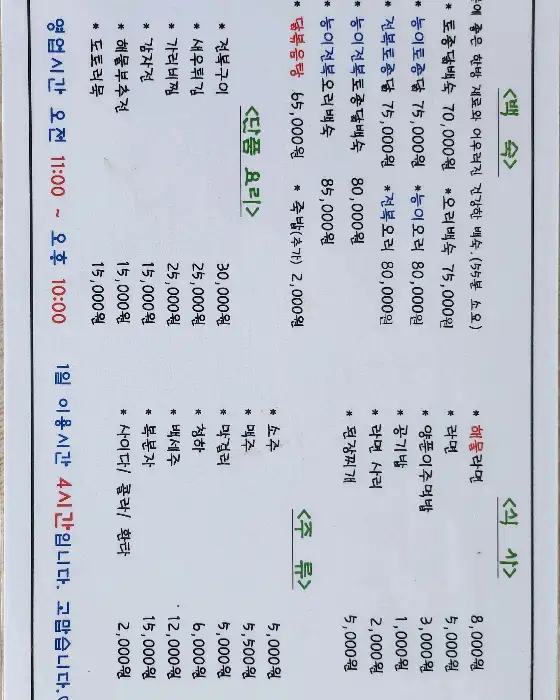 <백 숙>
에 좋은 한방 재료와 어우러진 건강한 백숙.(55분 소요)
* 토종닭백숙 70,000원 * 오리백숙 75,000원
* 능이토종닭 75,000원 * 능이오리 80,000원
* 전복토종닭 75,000원 * 전복오리 80,000원
* 능이전복토종닭백숙 80,000원
* 능이전복오리백숙 85,000원
* 닭볶음탕 65,000원 * 죽밥(추가) 2,000원
<단품 요리>
* 전복구이 30,000원
* 새우튀김 25,000원
* 가리비찜 25,000원
* 감자전 15,000원
* 해물부추전 15,000원
* 도토리묵 15,000원
<식 사>
* 해물라면 8,000원
* 라면 5,000원
* 영뿐이주먹밥 3,000원
* 공기밥 1,000원
* 라면 사리 2,000원
* 된장찌개 5,000원
<주 류>
* 소주 5,000원
* 맥주 5,500원
* 막걸리 5,000원
* 청하 6,000원
* 백세주 12,000원
* 복분자 15,000원
* 사이다/ 콜라/ 환타 2,000원
영업시간 오전 11:00 ~ 오후 10:00 1일 이용시간 4시간입니다. 고맙습니다.^